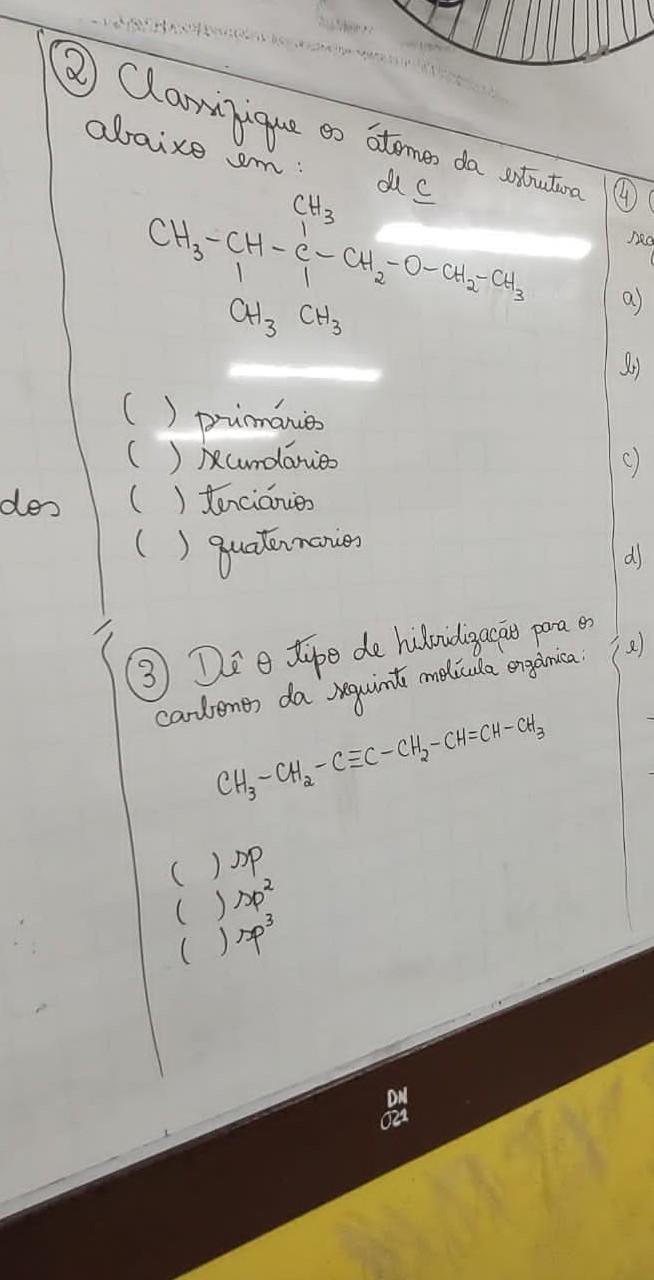 ② Classifique os átomos da estrutura
de C
abaixo em:
CH₃
CH₃-CH-C-CH₂-O-CH₂-CH₃
CH₃ CH₃
( ) primários
( ) secundários
( ) terciários
( ) quaternarios
dos
③ Dê o tipo de hibridização para os
carbonos da seguinte molécula orgânica:
CH₃-CH₂-C≡C-CH₂-CH=CH-CH₃
( ) sp
( ) sp²
( ) sp³
④
a)
b)
c)
d)
e)
DN
021